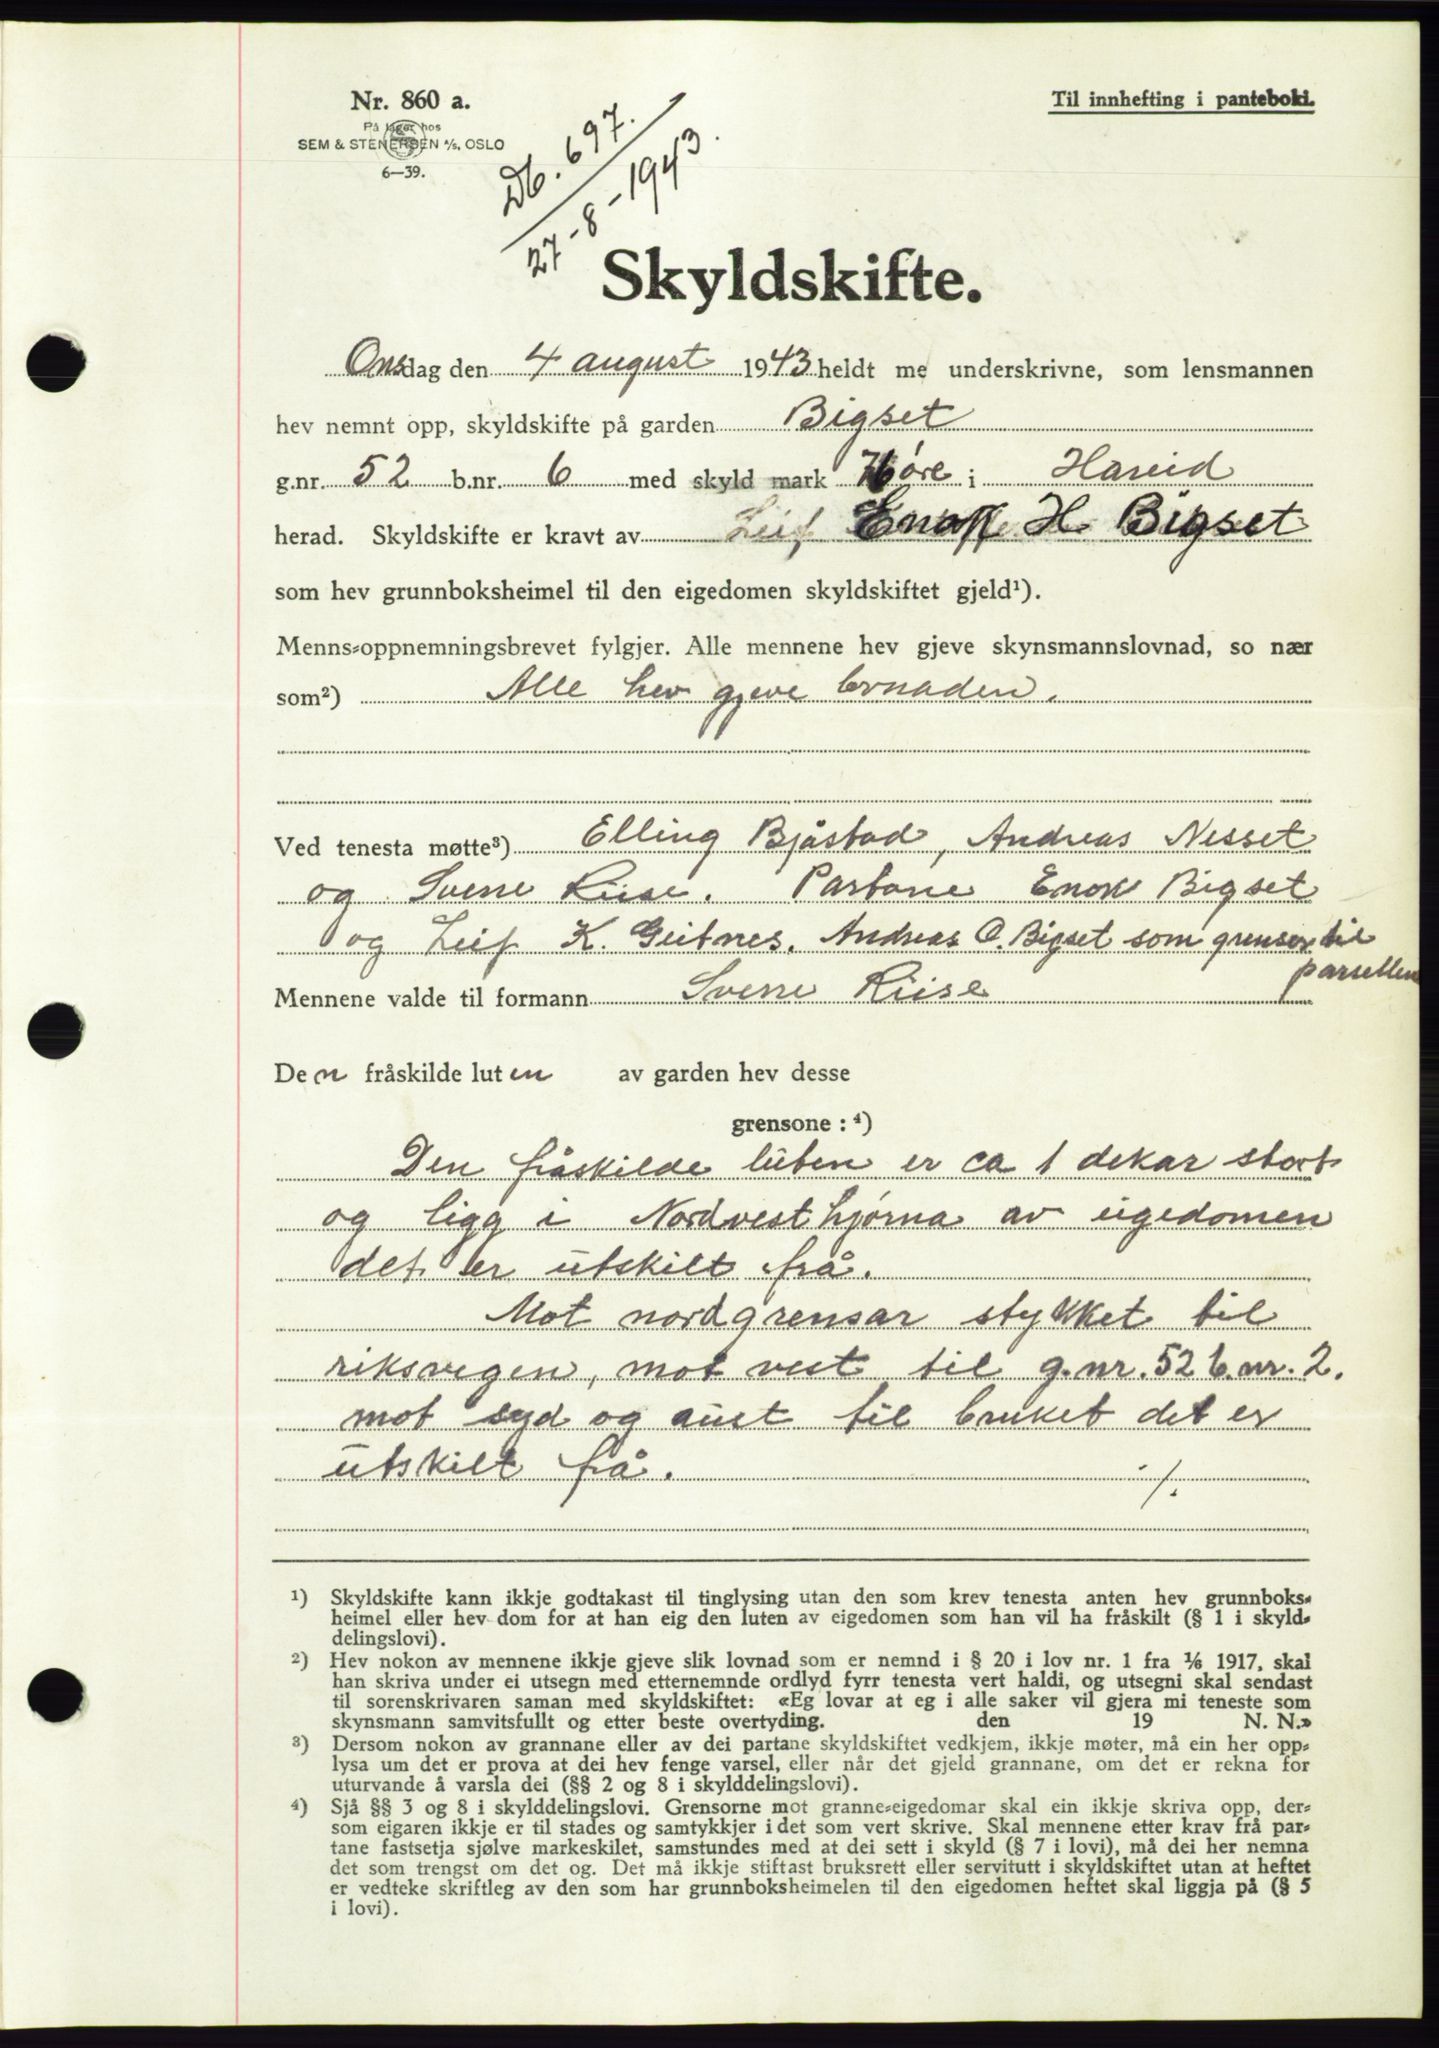 Nr. 860 a.
På lager hos
SEM & STENERSEN A/S, OSLO
6—39.
Til innhefting i panteboki.
Db. 697.
27-8-1943.
Skyldskifte.
Onsdag den 4 august 1943 heldt me underskrivne, som lensmannen
hev nemnt opp, skyldskifte på garden Bigset
g.nr. 52 b.nr. 6 med skyld mark øre i Hareid
herad. Skyldskifte er kravt av Enok H Bigset
som hev grunnboksheimel til den eigedomen skyldskiftet gjeld¹).
Menns-oppnemningsbrevet fylgjer. Alle mennene hev gjeve skynsmannslovnad, so nær
som²) Alle hev gjeve lovnaden.
Ved tenesta møtte³) Elling Bjåstad, Andreas Nesset
og Sverre Riise. Partane Enok Bigset
og Leif K. Geitnes. Andreas O. Bigset som grensar til
parsellen
Mennene valde til formann Sverre Riise
Den fråskilde luten av garden hev desse
grensone : ⁴)
Den fråskilde luten er ca 1 dekar stort
og ligg i Nordvesthjørna av eigedomen
det er utskilt frå.
Mot nord grensar stykket til
riksvegen, mot vest til g.nr. 52 b.nr. 2.
mot syd og aust til bruket det er
utskilt frå. ./.
¹) Skyldskifte kann ikkje godtakast til tinglysing utan den som krev tenesta anten hev grunnboks-
heimel eller hev dom for at han eig den luten av eigedomen som han vil ha fråskilt (§ 1 i skyld-
delingslovi).
²) Hev nokon av mennene ikkje gjeve slik lovnad som er nemnd i § 20 i lov nr. 1 fra 1/6 1917, skal
han skriva under ei utsegn med etternemnde ordlyd fyrr tenesta vert haldi, og utsegni skal sendast
til sorenskrivaren saman med skyldskiftet: «Eg lovar at eg i alle saker vil gjera mi teneste som
skynsmann samvitsfullt og etter beste overtyding. den 19 N. N.»
³) Dersom nokon av grannane eller av dei partane skyldskiftet vedkjem, ikkje møter, må ein her opp-
lysa um det er prova at dei hev fenge varsel, eller når det gjeld grannane, om det er rekna for
uturvande å varsla dei (§§ 2 og 8 i skylddelingslovi).
⁴) Sjå §§ 3 og 8 i skylddelingslovi. Grensorne mot granne-eigedomar skal ein ikkje skriva opp, der-
som eigaren ikkje er til stades og samtykkjer i det som vert skrive. Skal mennene etter krav frå par-
tane fastsetja sjølve markeskilet, samstundes med at dei sett i skyld (§ 7 i lovi), må dei her nemna
det som trengst om det og. Det må ikkje stiftast bruksrett eller servitutt i skyldskiftet utan at heftet
er vedteke skriftleg av den som har grunnboksheimelen til den eigedomen heftet skal liggja på (§ 5
i lovi).